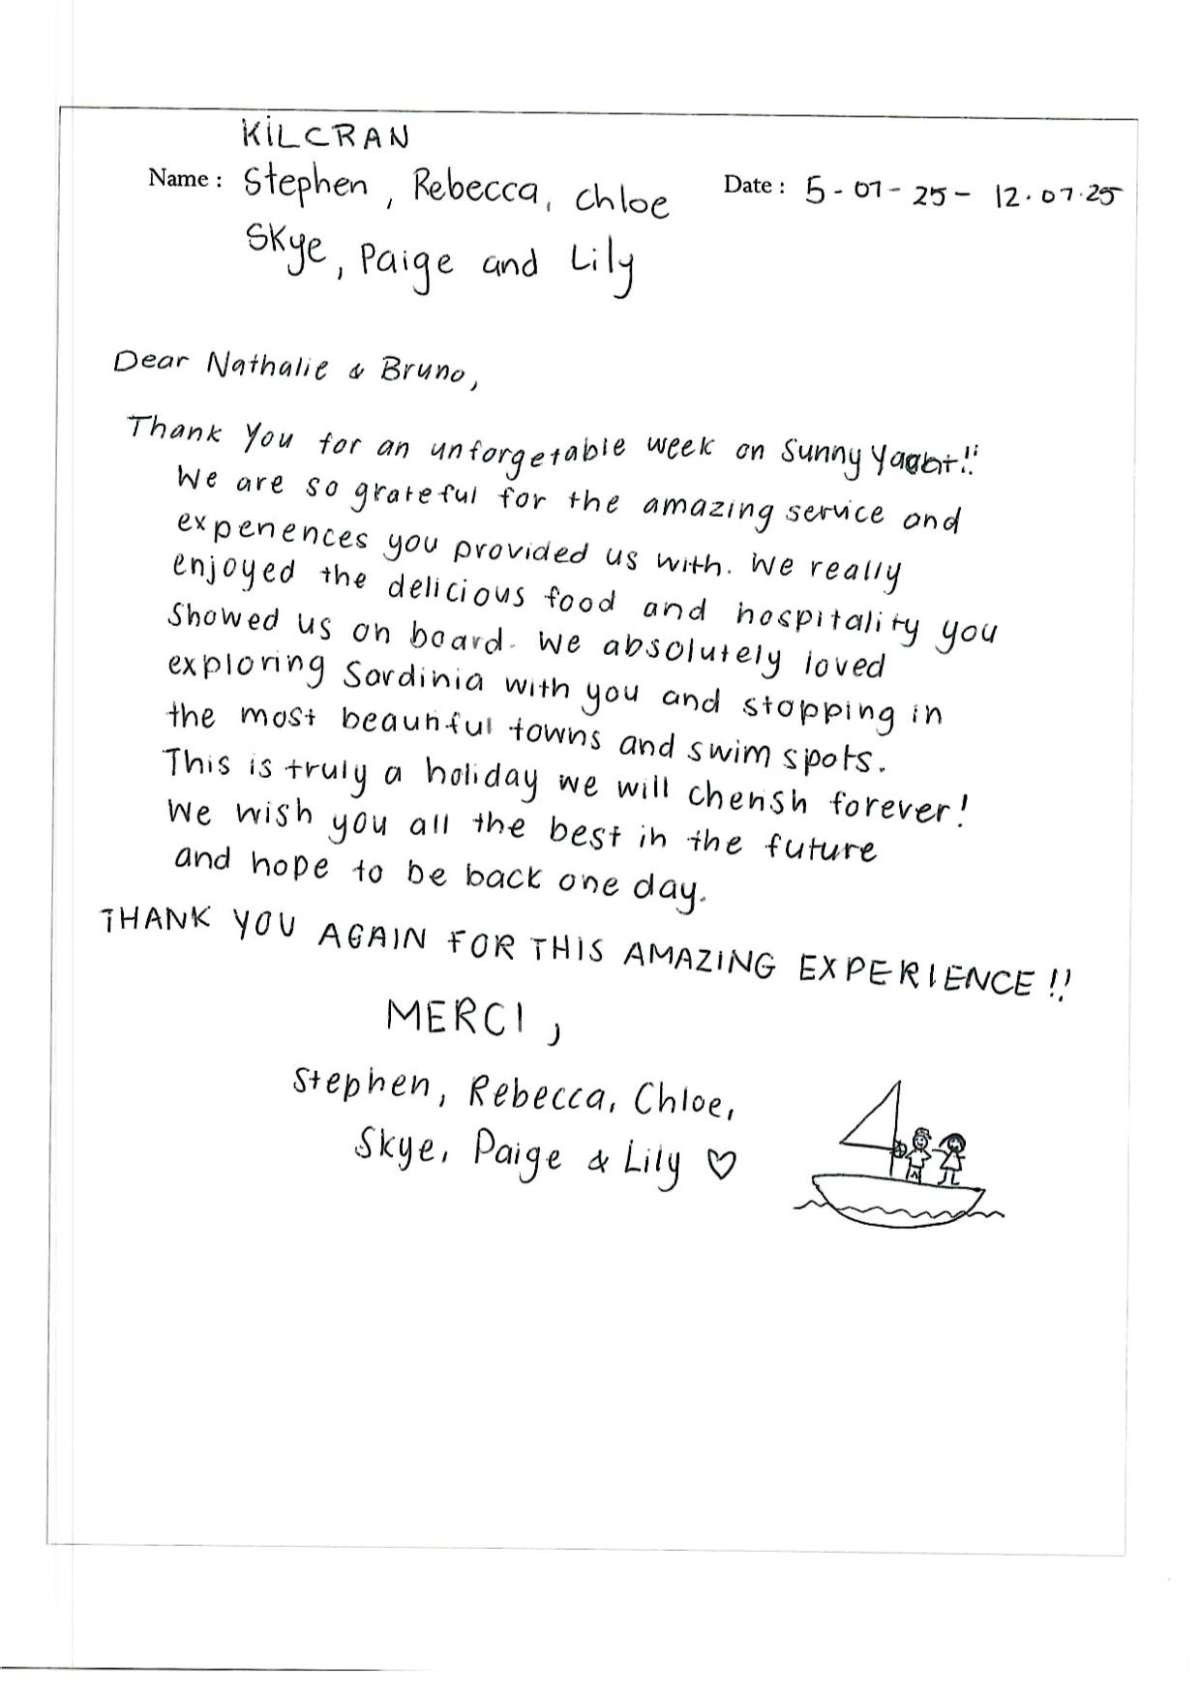 KILCRAN
Name : Stephen, Rebecca, Chloe
Skye, Paige and Lily
Date : 5-07-25 - 12.07.25
Dear Nathalie & Bruno,
Thank You for an unforgetable week on Sunny Yacht!!
We are so grateful for the amazing service and
experiences you provided us with. We really
enjoyed the delicious food and hospitality you
Showed us on board. We absolutely loved
exploring Sardinia with you and stopping in
the most beautiful towns and swim spots.
This is truly a holiday we will cherish forever!
We wish you all the best in the future
and hope to be back one day.
THANK YOU AGAIN FOR THIS AMAZING EXPERIENCE!!
MERCI,
Stephen, Rebecca, Chloe,
Skye, Paige & Lily ♡